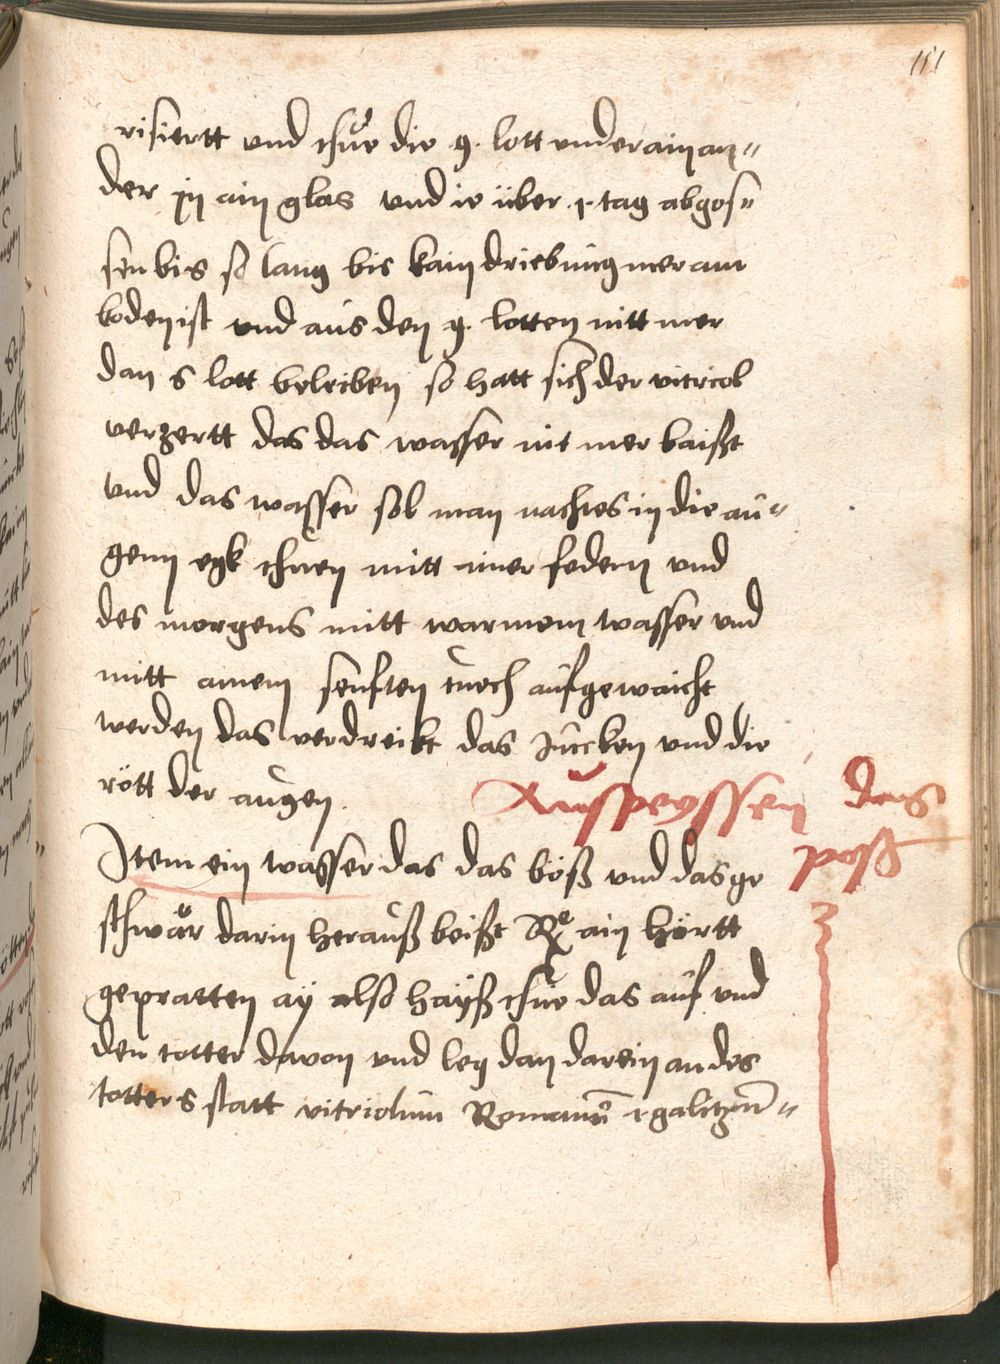 151
risiertt und thuͦe die 9. lott underainan=
der jn ain glas und ie über .1. tag abgos=
sen bis so lang bis kain driebung mer am
boden ist und aus den 9. lotten nitt mer
dan 6 lott beleiben so hatt sich der vitriol
verzertt das das wasser nit mer baißt
und das wasser sol man nachtes in die au=
genn egk thuen mitt ainer federn und
des morgens mitt warmem wasser und
mitt ainem senften tuoch aufgewaicht
werden das verdreibt das Juncken und die
rött der augen.
Auspeyssen das
poß
Item ein wasser das das böß und das ge
schwär darin herauß beißt Re ain hörtt
gepratten ay also hayß thue das auf und
den totter davon und leg dan darein an des
totters statt vitriolum Romanū .1. galitzen=